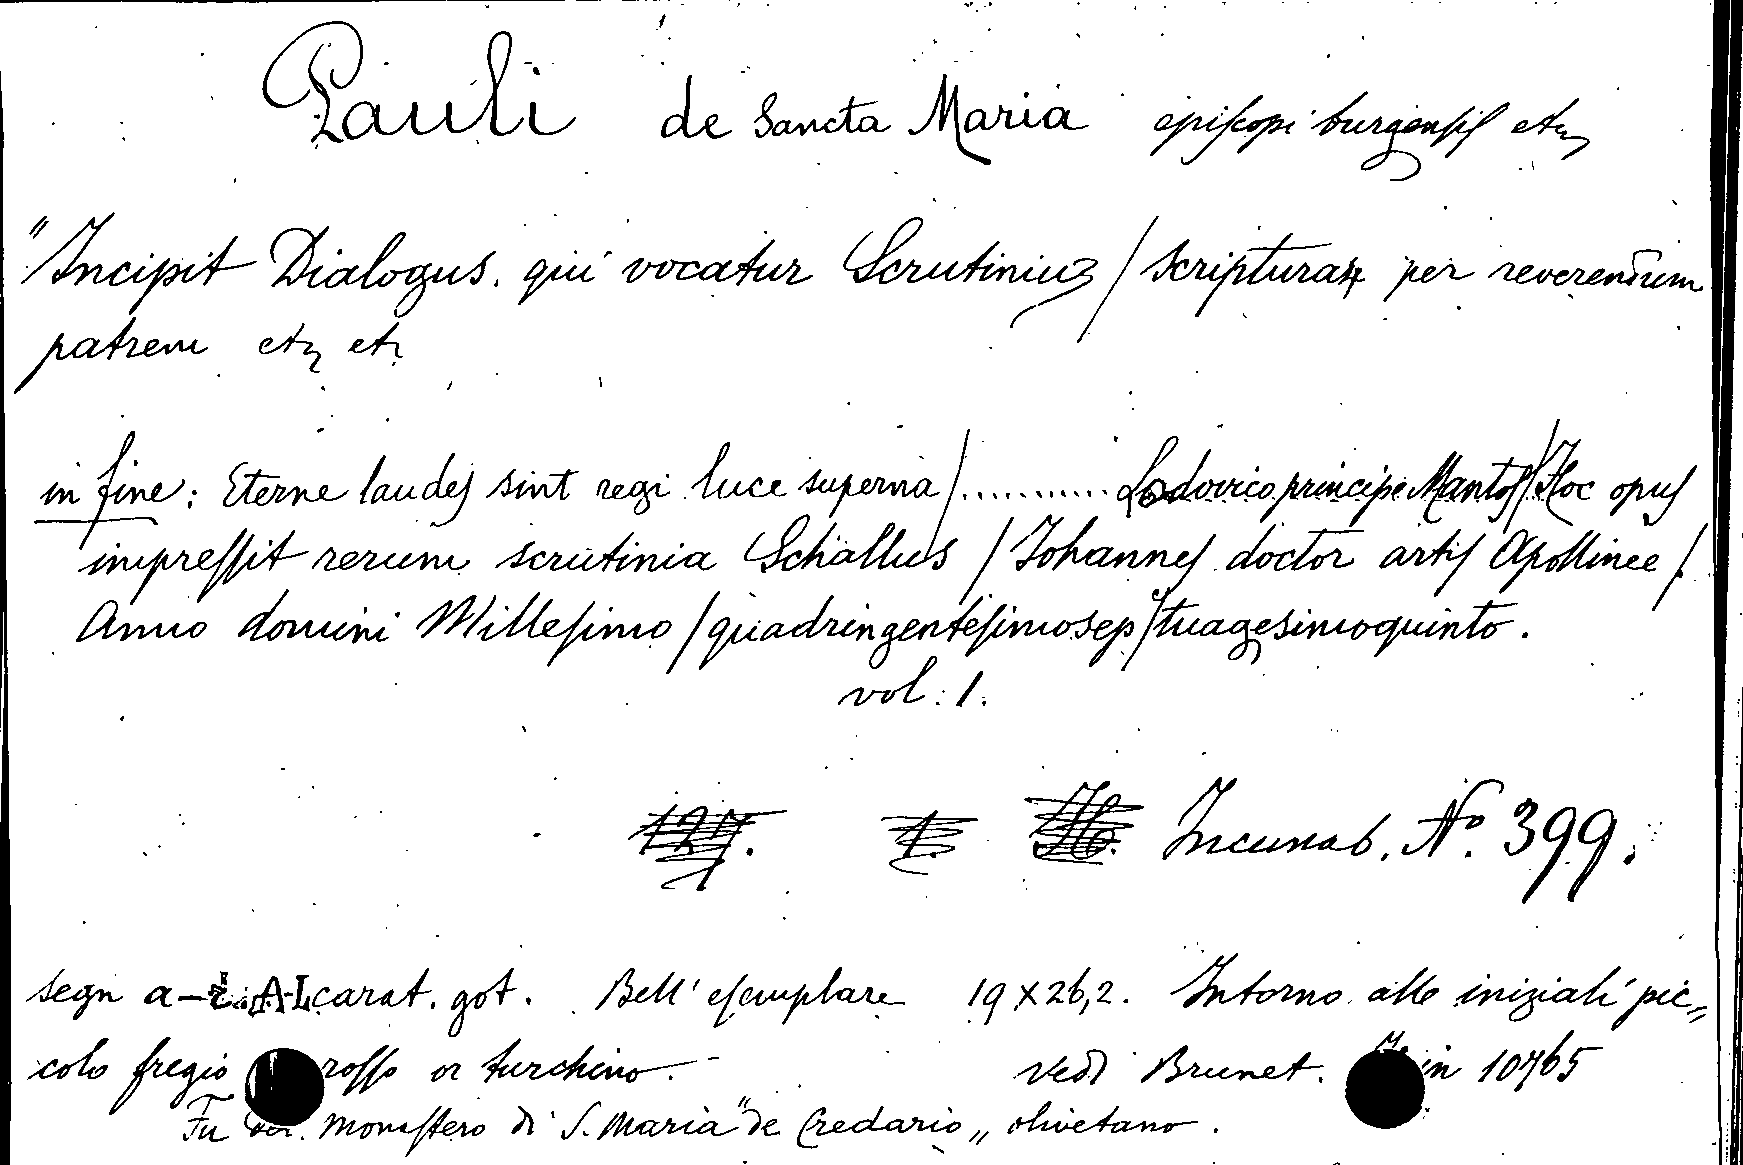 Pauli de Sancta Maria epiſcopi burgenſiſ etc
"Incipit Dialogus. qui vocatur Scrutiniuʒ / scripturaꝝ per reverendum
patrem etc etc
in fine: Eterne laudeſ sint regi luce superna /........... Lodovico principe Mantoſ / Hoc opuſ
impreſſit rerum scrutinia Schallus / Johanneſ doctor artiſ Apollinee /
Anno domini Milleſimo / quadringenteſimosep / tuagesimoquinto.
vol: 1.
127. 1. Incunab. Nº. 399.
segn a- AL carat. got. Bell' eſemplare 19 x 26,2. Intorno alle iniziali pic„
colo fregio roſſo or turchino. vedi Brunet. in 10765
Fu monaſtero di S. Maria "de Credario„ olivetano.